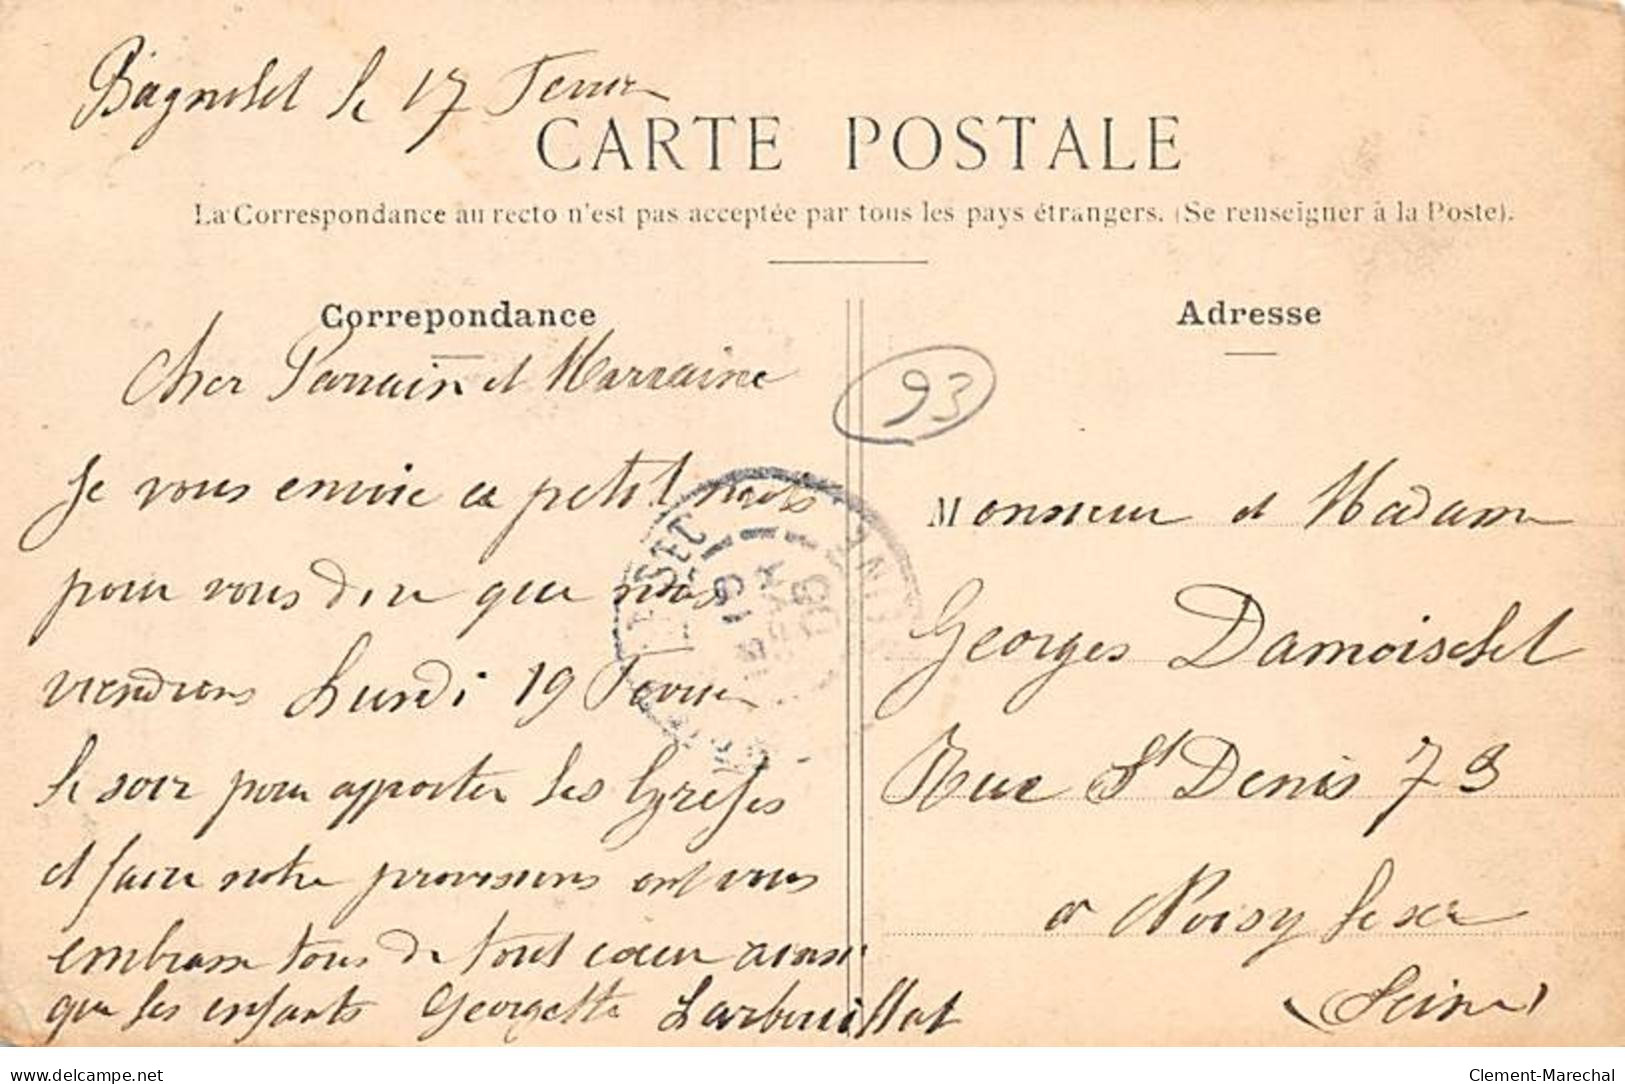 Bagnolet le 17 Fevrier
CARTE POSTALE
La Correspondance au recto n'est pas acceptée par tous les pays étrangers. (Se renseigner à la Poste).
Correpondance
Cher Parrain et Marraine
Je vous envoie ce petit mots
pour vous dire que nous
viendrons Lundi 19 Fevrier
le soir pour apporter les Greffes
et faire notre provisions ont vous
embrasse tous de tout cœur ainsi
que les enfants Georgette Larbouillat
93
Adresse
Monsieur et Madame
Georges Damoiselet
Rue St Denis 73
a Noisy le sec
(Seine)
delcampe.net
Clement-Marechal